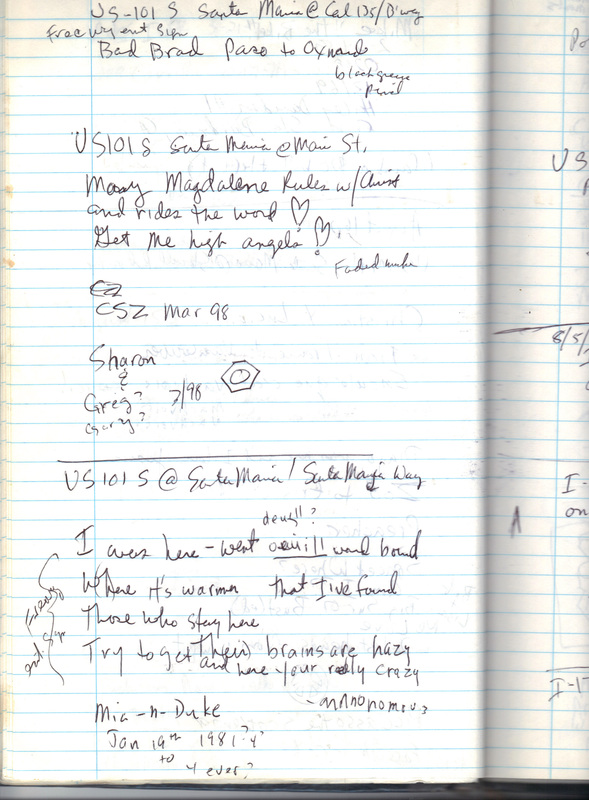 US-101 S Santa Maria @ Cal 135/B'way
Freeway ent Sign
Bad Brad Paso to Oxnard
black grease
pencil
US101 S Santa Maria @ Main St.
Mary Magdalene Rules w/Christ
and rides the word ♡
Get me high angels ♡.
Faded marker
CSZ Mar 98
Sharon
&
Greg? 7/98
Gary?
US 101 S @ Santa Maria / Santa Maria Way
devill?
I was here - went bound
Where it's warmer that I've found
Those who stay here
Try to get Their brains are hazy
and here your really crazy
- annonomous
Freeway
ent. sign
Mia-n-Duke
Jan 19th 1981?4?
to
4 ever?
8/5/
US
I-
on
I-1